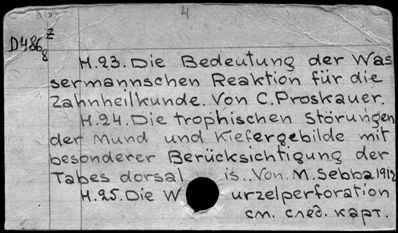 4
D486 z/8
H.23. Die Bedeutung der Was
sermannschen Reaktion für die
Zahnheilkunde. Von C. Proskauer.
H.24. Die trophischen Störungen
der Mund und Kiefergebilde mit
besonderer Berücksichtigung der
Tabes dorsal is. Von. M. Sebba 1912
H.25. Die W urzelperforation
см. след. карт.